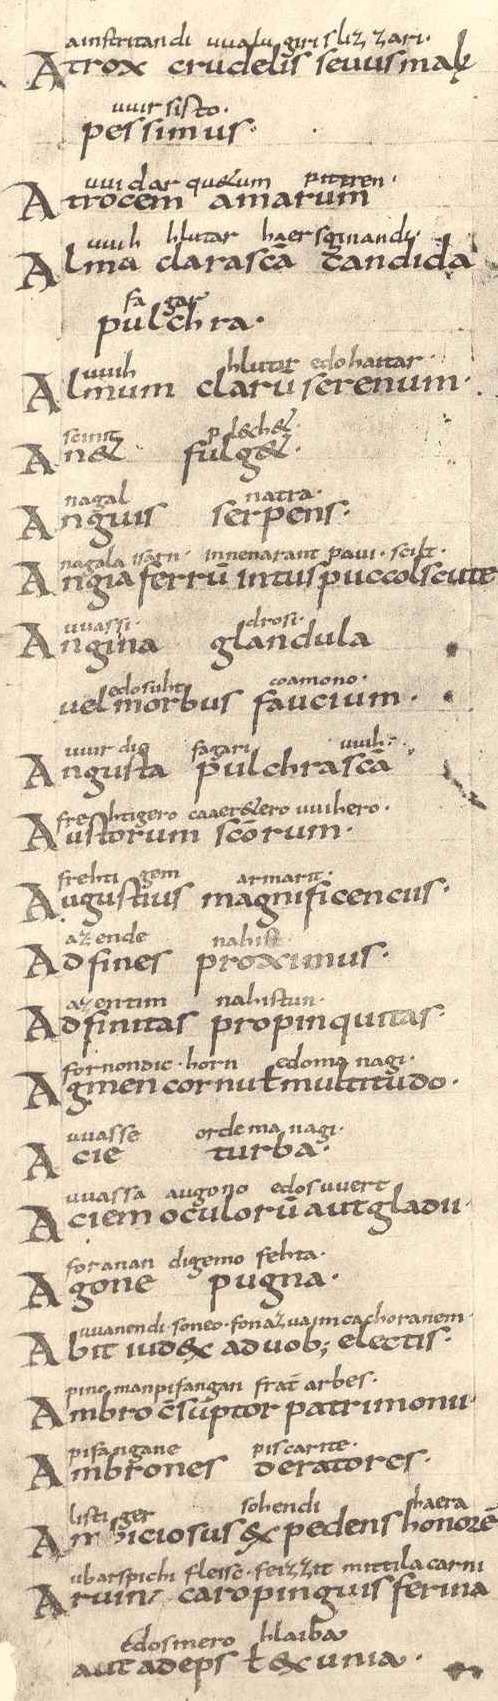 ainstritandi uualu giri sliz zari·
Atrox crudelis seuus mal&
uuir sisto·
pessimus·
uuidar qu&um pittren·
Atrocem amarum
uuih hlutar haer scinandi·
Alma clara scā candida
fagar
pulchra·
uuih hlutar edo haitar·
Almum clarū serenum·
scinit plech&·
An& fulg&·
nagal natra·
Anguis serpens·
nagala isarn· innenarant paui· scilt·
Angia ferrū intus puccol scute
uuassi· drosi·
Angina glandula
edo suht coamono·
uel morbus faucium·
uuirdig fagari uuih·
Angusta pulchra scā
frehtigero caaer&ero uuihero·
Austorum scorum·
frehtigem armarit·
Augustius magnificencius·
az ende nahist
Ad fines proximus·
az entim nahistun·
Ad finitas propinquitas·
fornondic· horn edo managi·
Agmen cornu ł multitudo·
uuasse orde managi·
Acie turba·
uuassa augono edo suuert
Aciem oculorū aut gladii·
foranan digemo fehta·
Agone pugna·
uuanendi soneo· fona zuaim cachoranem·
Abit iudex ad uob; electis·
pino manpifangan frat arbes·
Ambro csuptor patrimonii·
pifangane piscarite·
Ambrones deratores·
listi ger sohendi haera
Ambiciosus & pedens honorē
ubarspichi fleisc· feizzit mittila carni
Aruina caro pinguis ferina
edo smero hlaiba
aut adeps ł exunia·